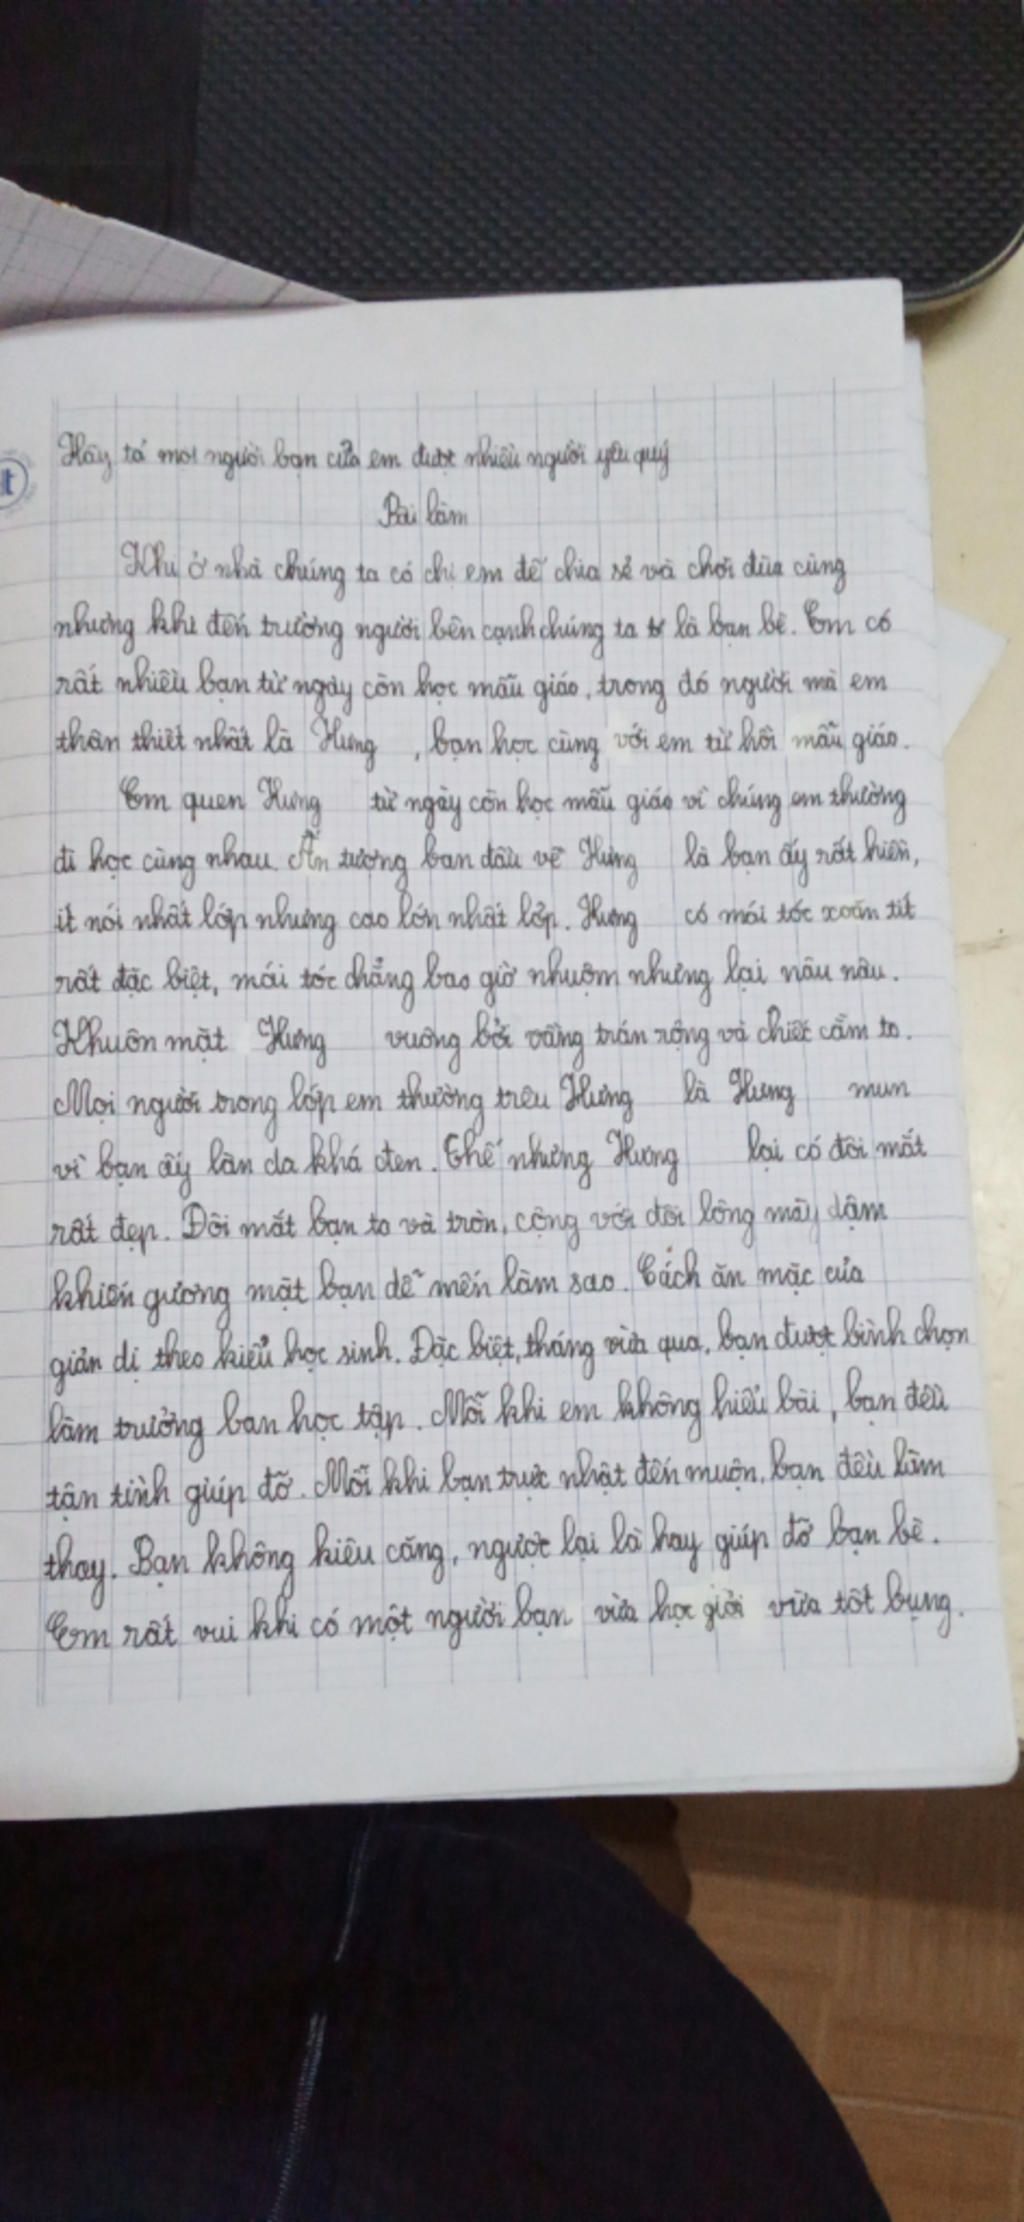 Hãy tả một người bạn của em được nhiều người yêu quý
Bài làm
Khi ở nhà chúng ta có chị em để chia sẻ và chơi đùa cùng
nhưng khi đến trường người bên cạnh chúng ta là bạn bè. Em có
rất nhiều bạn từ ngày còn học mẫu giáo, trong đó người mà em
thân thiết nhất là Hưng , bạn học cùng với em từ hồi mẫu giáo.
Em quen Hưng từ ngày còn học mẫu giáo vì chúng em thường
đi học cùng nhau. Ấn tượng ban đầu về Hưng là bạn ấy rất hiền,
ít nói nhất lớp nhưng cao lớn nhất lớp. Hưng có mái tóc xoăn tít
rất đặc biệt, mái tóc chẳng bao giờ nhuộm nhưng lại nâu nâu.
Khuôn mặt Hưng vuông bởi vầng trán rộng và chiếc cằm to.
Mọi người trong lớp em thường trêu Hưng là Hưng mun
vì bạn ấy làn da khá đen. Thế nhưng Hưng lại có đôi mắt
rất đẹp. Đôi mắt bạn to và tròn, cộng với đôi lông mày dậm
khiến gương mặt bạn dễ mến làm sao. Cách ăn mặc của
giản dị theo kiểu học sinh. Đặc biệt, tháng vừa qua, bạn được bình chọn
làm trưởng ban học tập. Mỗi khi em không hiểu bài, bạn đều
tận tình giúp đỡ. Mỗi khi bạn trực nhật đến muộn, bạn đều làm
thay. Bạn không kiêu căng, ngược lại là hay giúp đỡ bạn bè.
Em rất vui khi có một người bạn vừa học giỏi vừa tốt bụng.